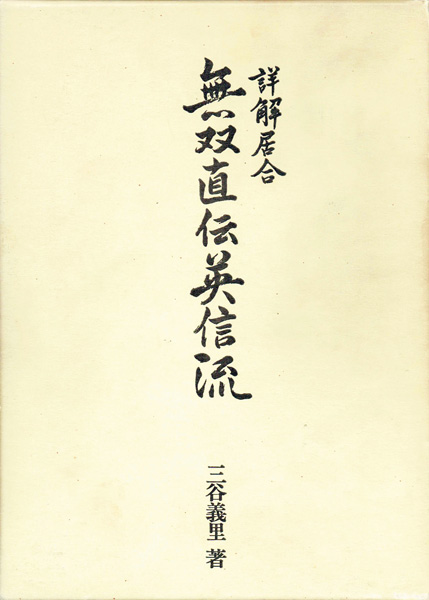 詳解居合
無双直伝英信流
三谷義里 著